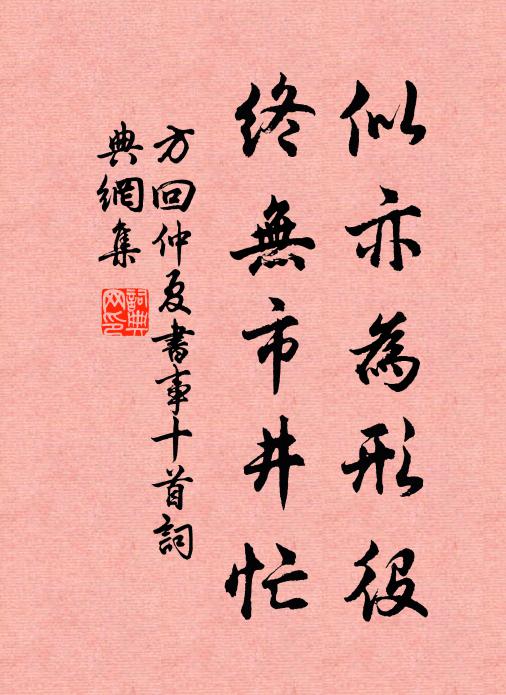 似亦為形役
終無市井忙
方回仲夏書事十首詞
典網集
詞典
网印